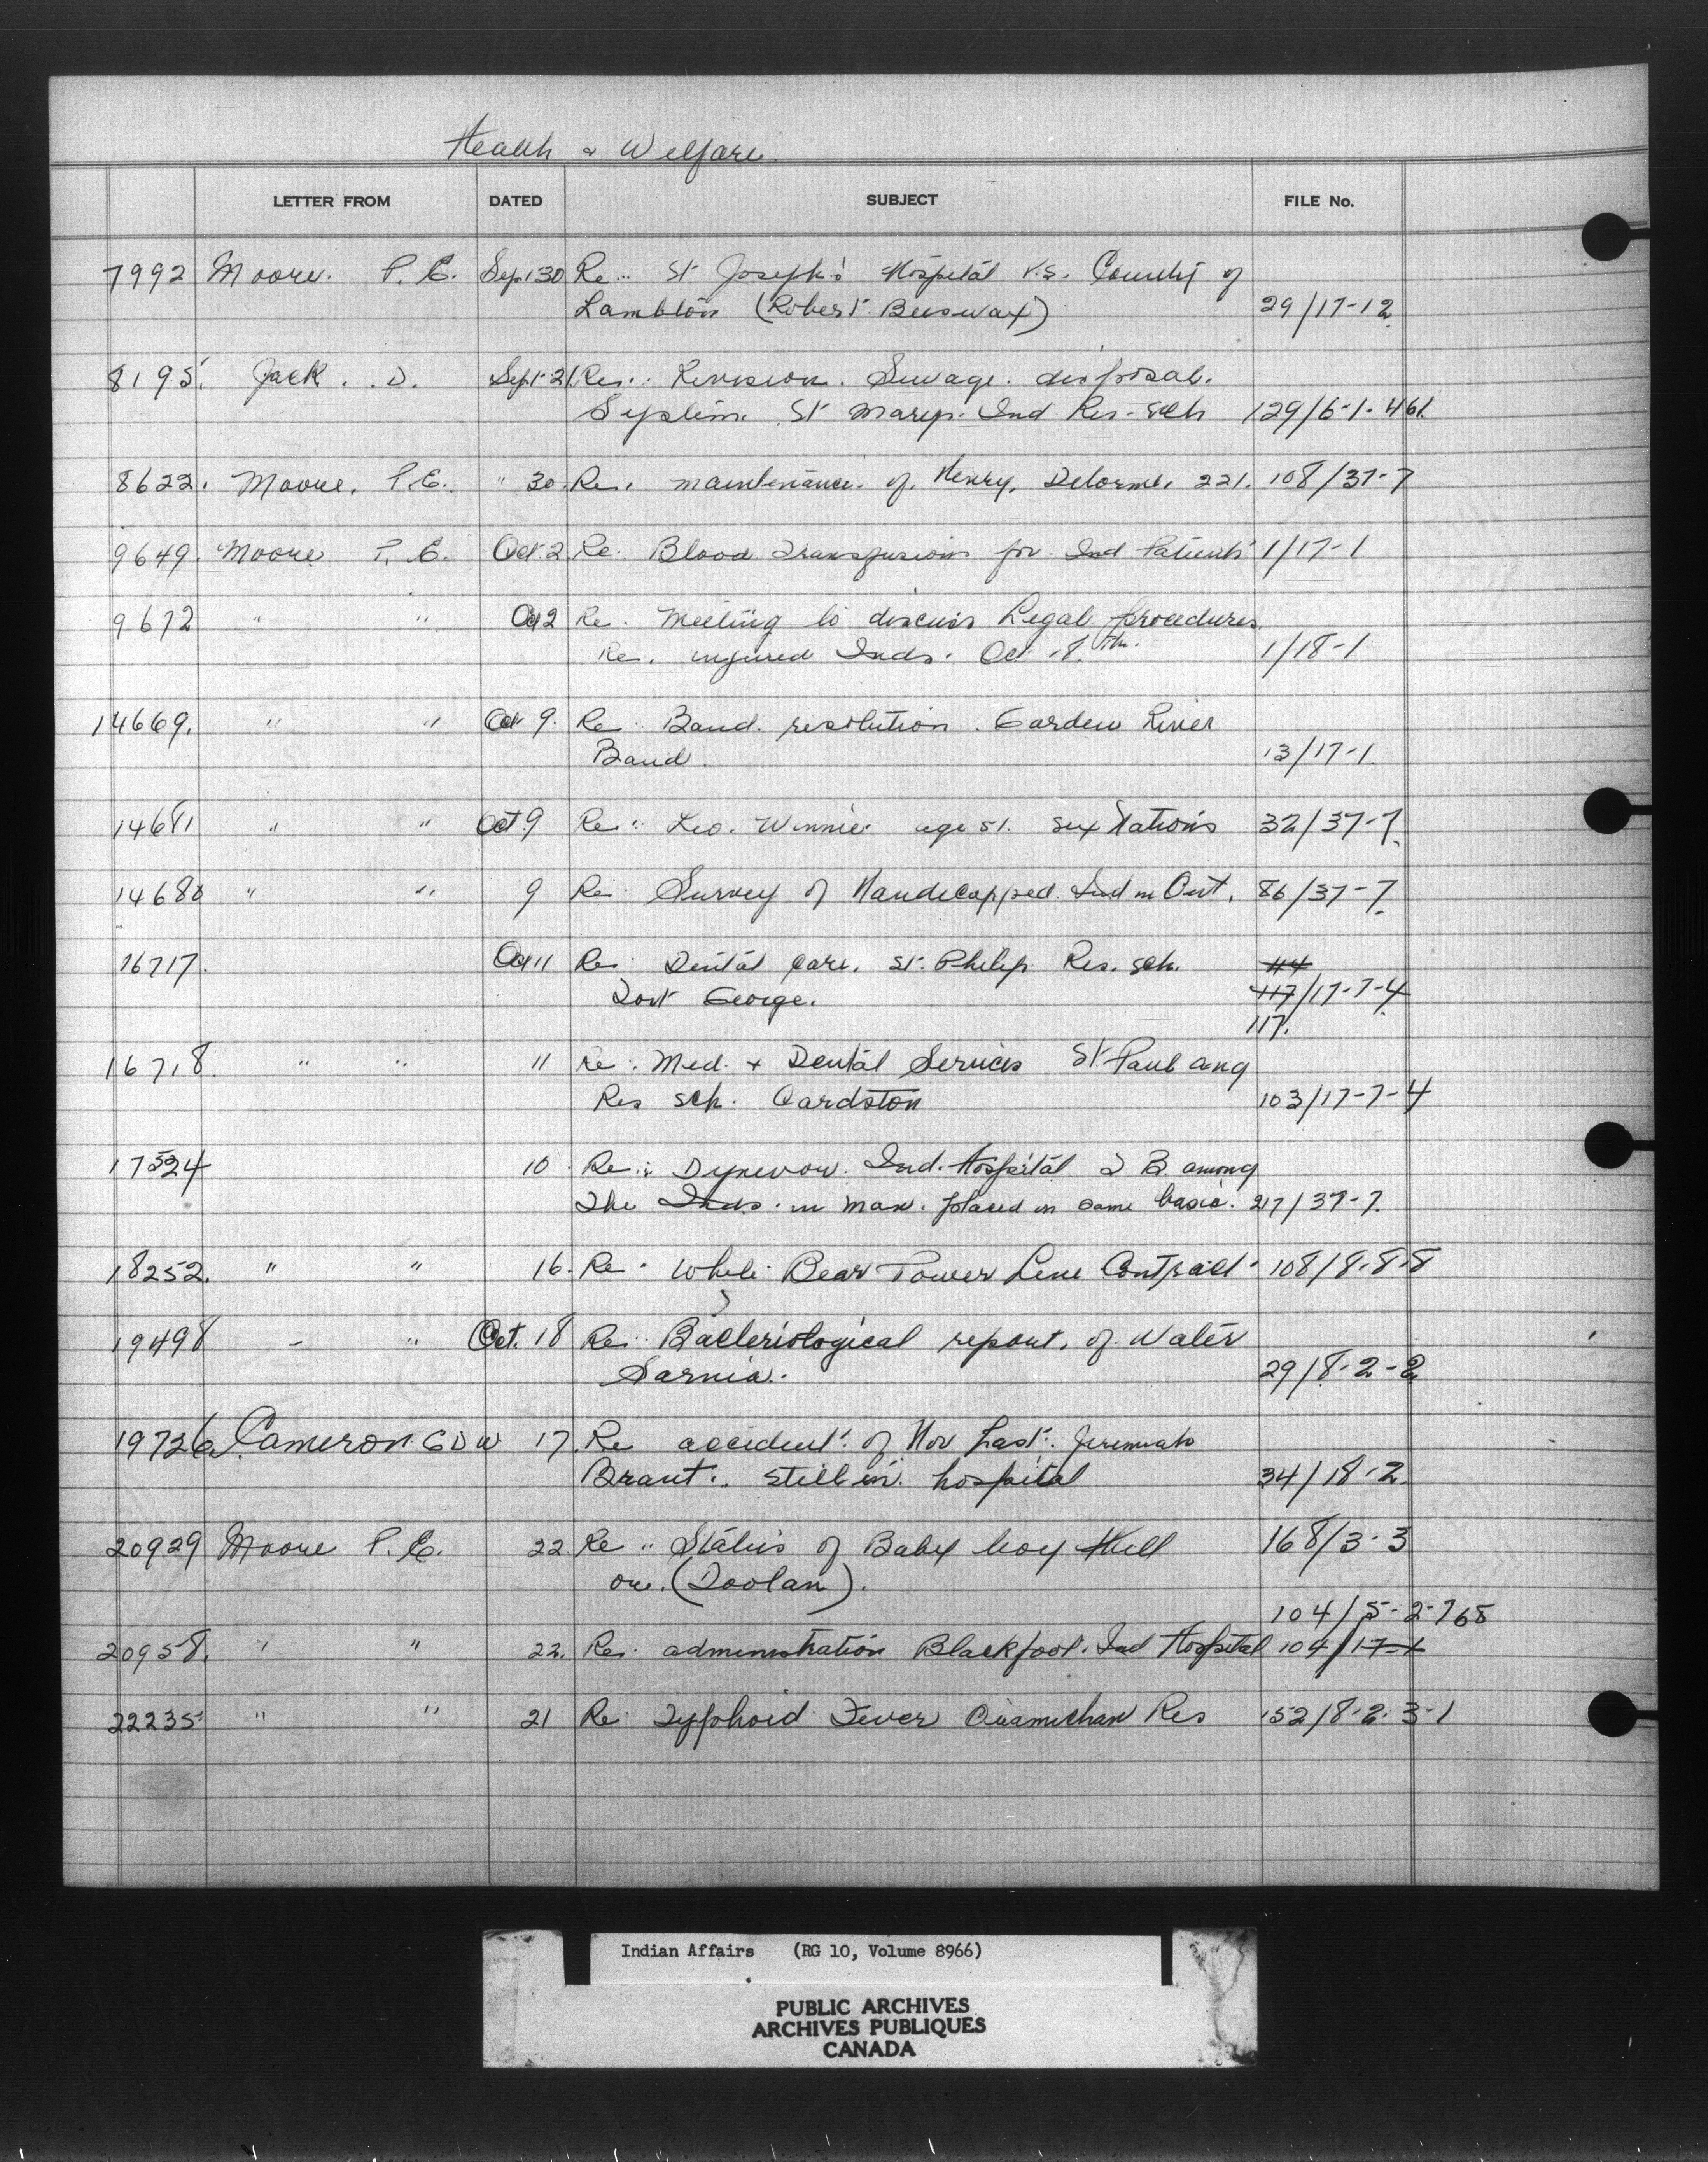 Health & Welfare.
LETTER FROM DATED SUBJECT FILE No.
7992 Moore. P. E. Sept 30 Re.. St Joseph's Hospital v.s. County of
Lambton (Robert Beeswax) 29/17-12
8195. Jack. D. Sept. 21. Re.. Revision. Sewage. disposal.
System. St Marys. Ind Res-Sch 129/6-1-461.
8622. Moore. P.E. " 30. Re. maintenance. of. Henry. Delorme. 221. 108/37-7
9649. Moore P. E. Oct. 2 Re. Blood Transfusions for Ind Patients 1/17-1
9672 " " Oct 2 Re. Meeting to discuss Legal procedures.
Re. injured Inds. Oct. 8.th. 1/18-1
14669. " " Oct 9. Re. Band. resolution. Garden River
Band. 13/17-1.
14681 " " Oct. 9 Re.. Leo. Winnie. age 51. Six Nations 32/37-7.
14680 " " 9 Re. Survey of Handicapped. Ind in Ont. 86/37-7.
16717. Oct 11 Re. Dental Care. St. Philip Res. Sch.
Fort George. 117/17-7-4
117.
16718. " " 11 Re. Med. + Dental Services St Paul ang
Res Sch. Cardston 103/17-7-4
17524 10. Re.. Dynevor. Ind. Hospital T B. among
The Inds. in Man. placed on same basis. 217/37-7.
18252. " " 16. Re. White Bear Power Line Contract. 108/8-8-8
19498 - " Oct. 18 Re.. Bacteriological report. of. Water
Sarnia. 29/8-2-2
19726. Cameron G D W 17. Re accident. of Nov last. Jeremiah
Brant.. still in. hospital 34/18-2.
20929 Moore P. E. 22 Re.. Status of Baby boy Hill 168/3-3
or. (Doolan).
104/5-2-765
20958. " " 22. Re. administration Blackfoot. Ind Hospital 104/17-1
22235 " " 21 Re. Typhoid Fever Quamichan Res 152/8-2-3-1
Indian Affairs (RG 10, Volume 8966)
PUBLIC ARCHIVES
ARCHIVES PUBLIQUES
CANADA